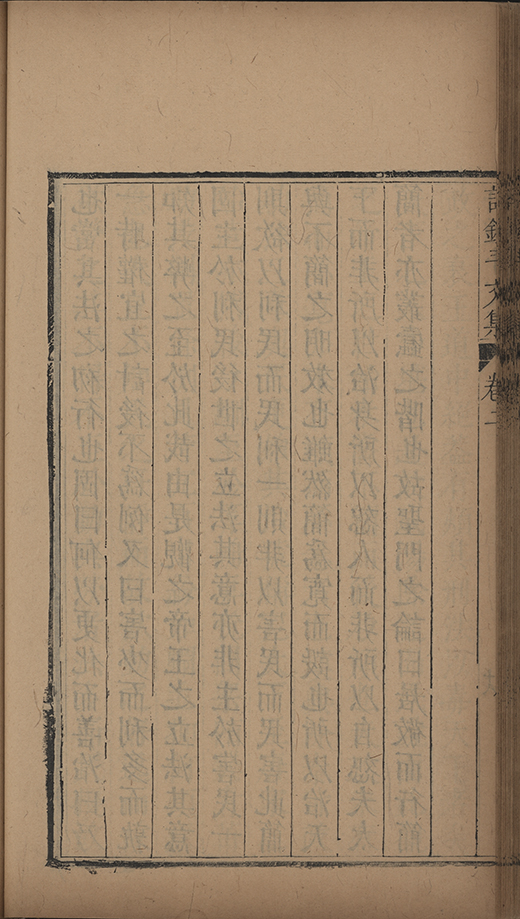 文集 卷二
也當其法之初行也固曰何以更化而善治曰乃
一時權宜之計後不為例又曰害少而利多而孰
知其弊之至於此哉由是觀之帝王之立法其意
固主於利民後世之立法其意亦非主於害民一
則欲以利民而民利一則非以害民而民害此簡
與不簡之明效也雖然簡為寬而設也所以治天
下而非所以治身所以恕人而非所以自恕夫太
簡者亦叢蠹之階也故聖門之論曰居敬而行簡